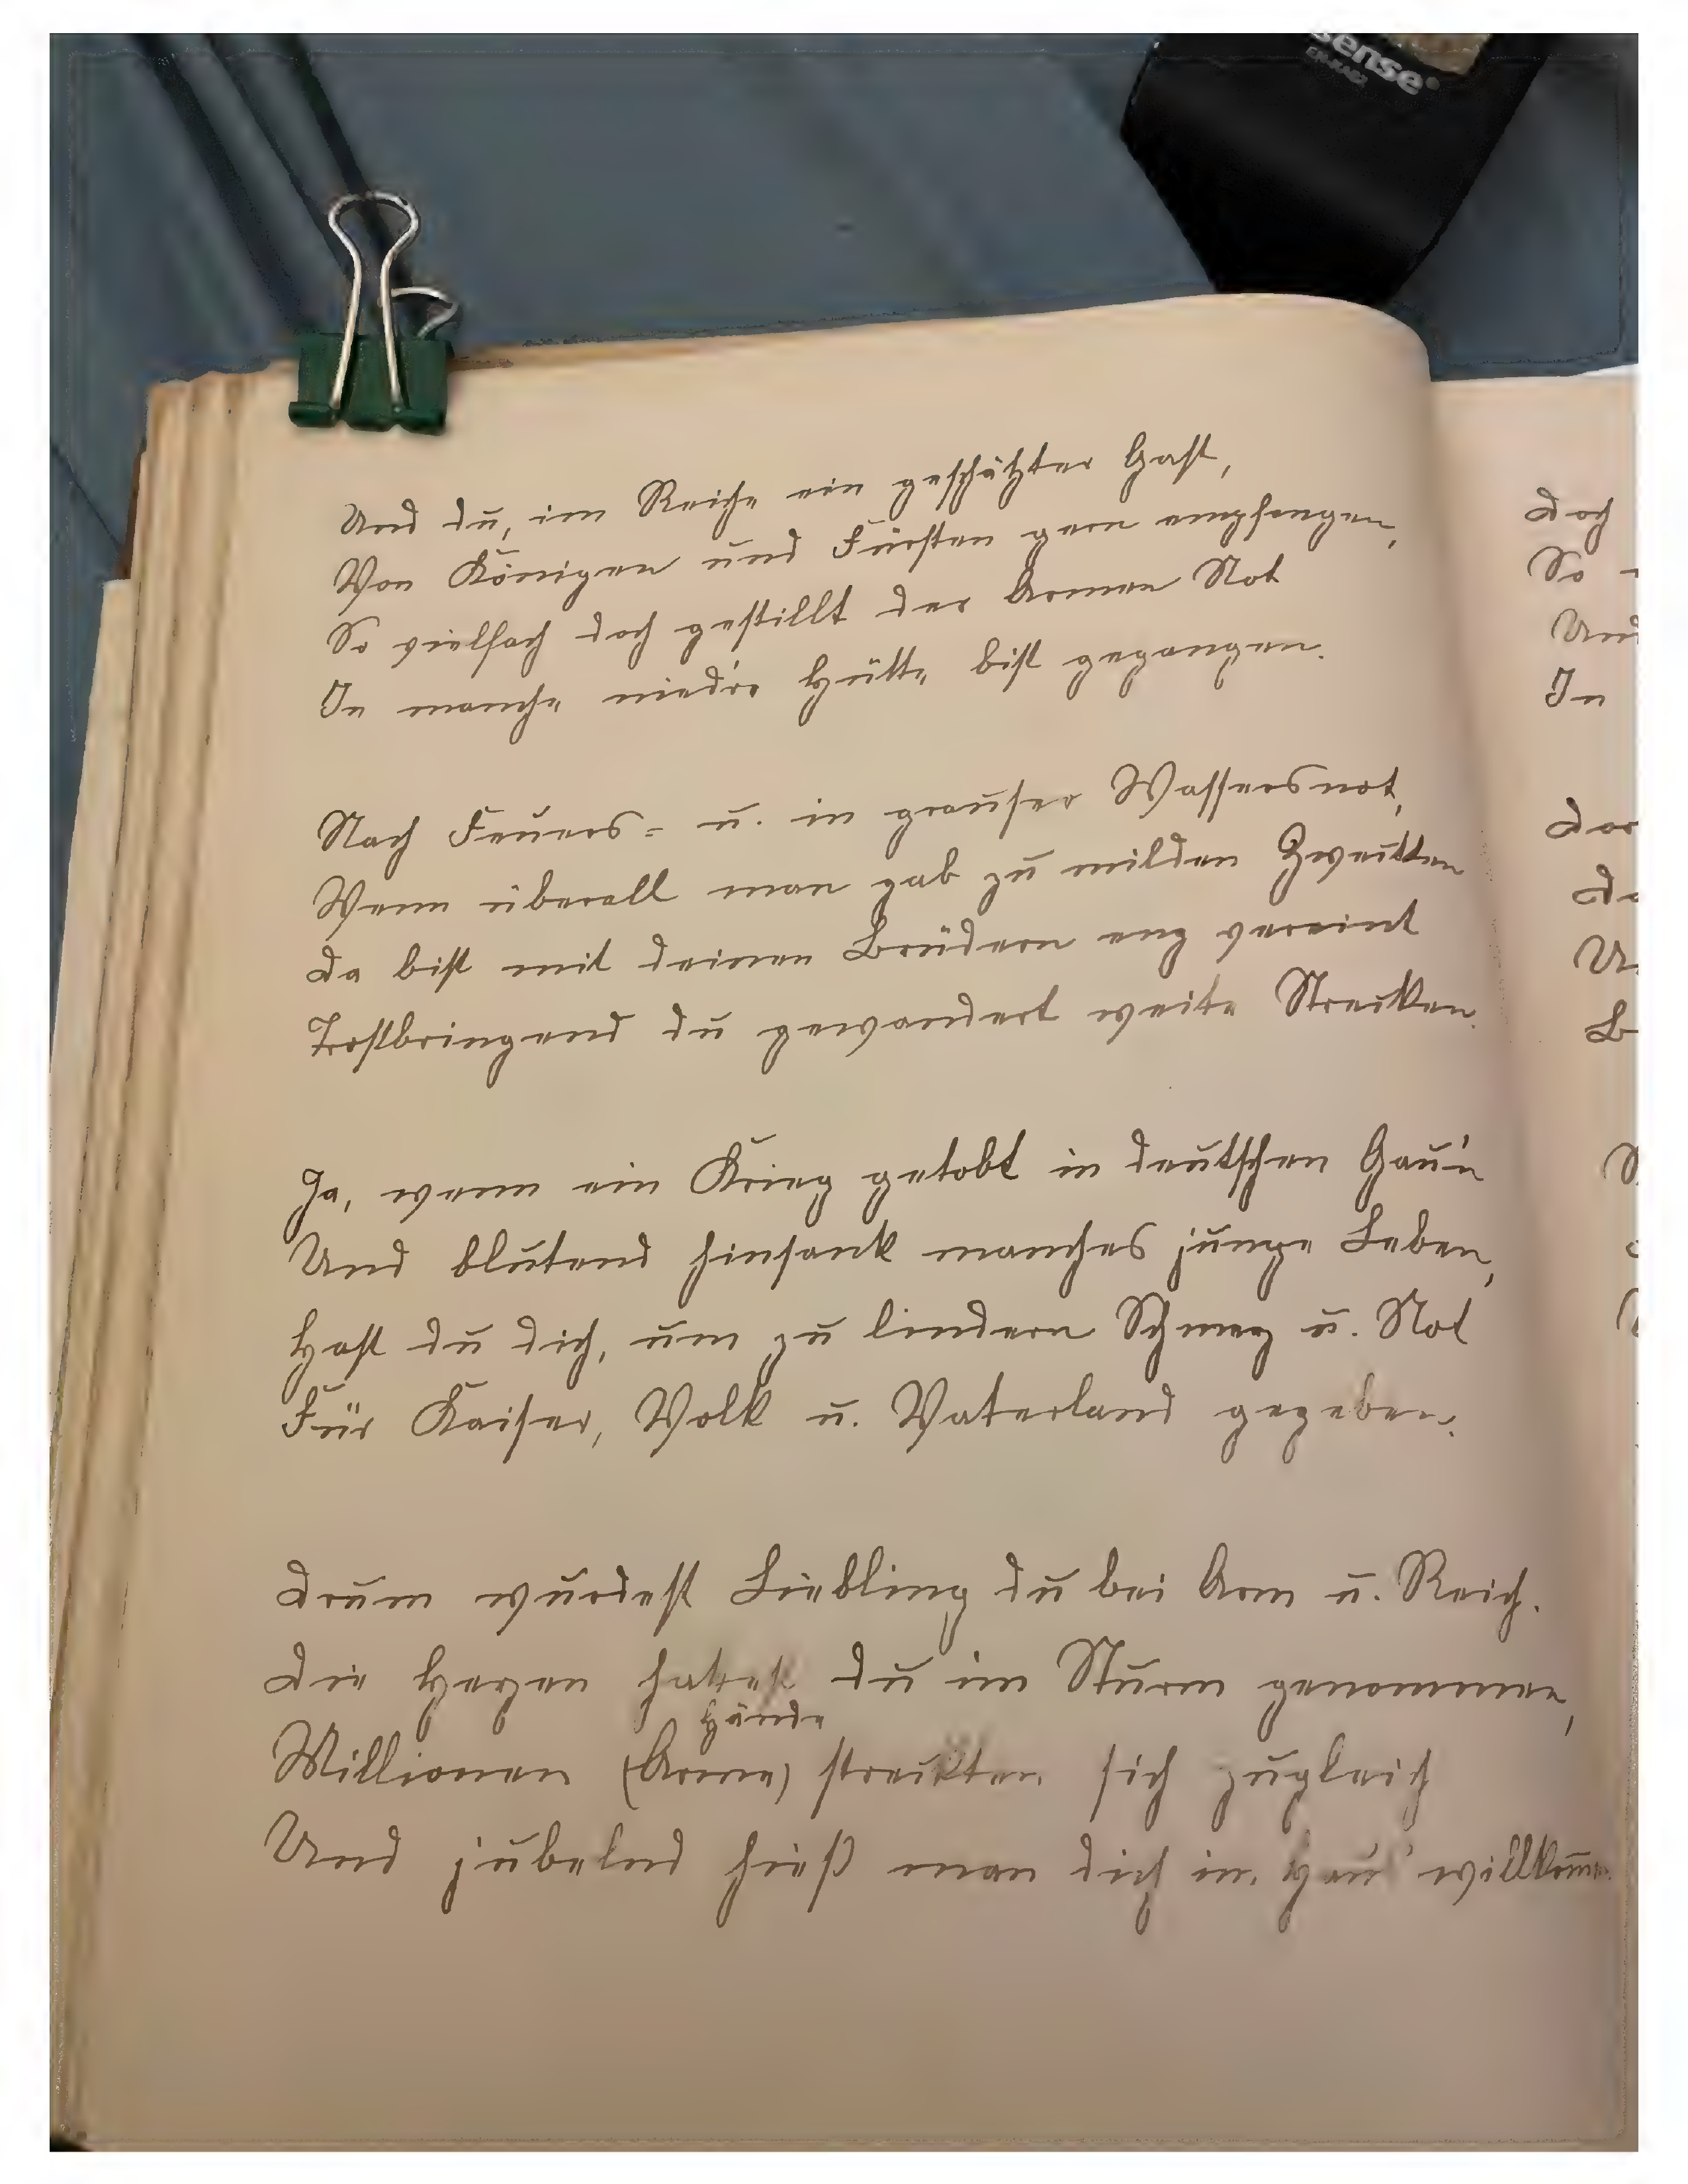 sense
Und du, im Reiche ein geschätzter Gast,
Von Königen und Fürsten gern empfangen,
So vielfach doch gestillt der Armen Not
In manche niedre Hütte bist gegangen.
Nach Feuers- u. in grauser Wassersnot,
Wenn überall man gab zu milden Zwecken
Da bist mit deinen Brüdern eng vereint
Trostbringend du gewandert weite Strecken.
Ja, wenn ein Krieg getobt in deutschen Gau'n
Und blutend hinsank manches junge Leben,
Hast du dich, um zu lindern Schmerz u. Not
Für Kaiser, Volk u. Vaterland gegeben.
Drum wurdest Liebling du bei Arm u. Reich.
Die Herzen hattest du im Sturm genommen,
Hände
Millionen (Arme) streckten sich zugleich
Und jubelnd hieß man dich im Haus willkomm̅en.
Doch
So
Und
In